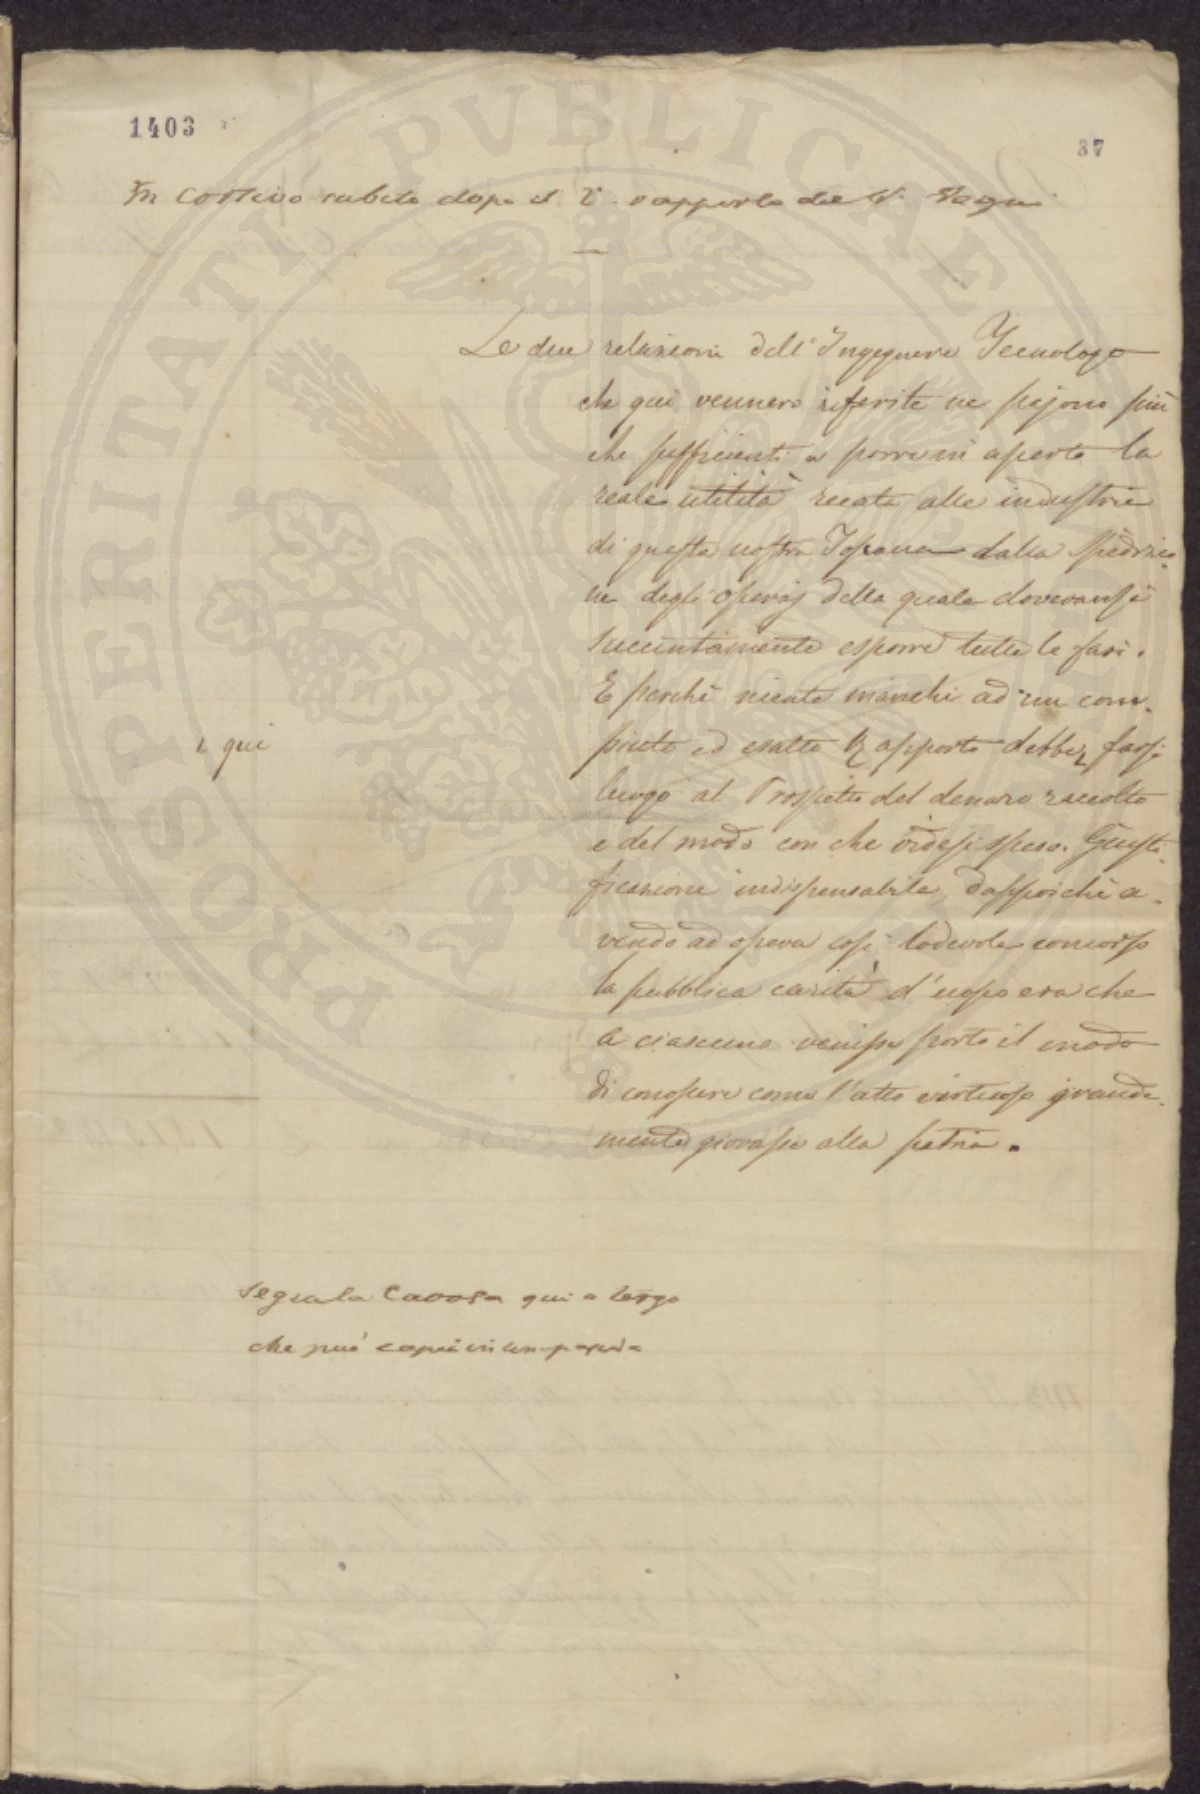 1403
37
In corsivo subito dopo il 2° rapporto del
Le due relazioni dell'Ingegnere Tecnologo
che qui vennero riferite ne pajono più
che sufficienti a porre in aperto la
reale utilità recata alle industrie
di questa nostra Toscana dalla spedizio-
ne degli operaj della quale dovevansi
succintamente esporre tutte le fasi.
E perché niente manchi ad un com-
piuto ed esatto Rapporto debbe farsi
e qui
luogo al Prospetto del denaro raccolto
e del modo con che videsi speso. Giusti-
ficazione indispensabile, dappoiché a-
vendo ad opera così lodevole concorso
la pubblica carità, d'uopo era che
a ciascuno venisse porto il modo
di conoscere come l'atto virtuoso grande-
mente giovasse alla patria.
Segua la qui a tergo
che può capire in una pagina
PROSPERITATI PVBLICAE